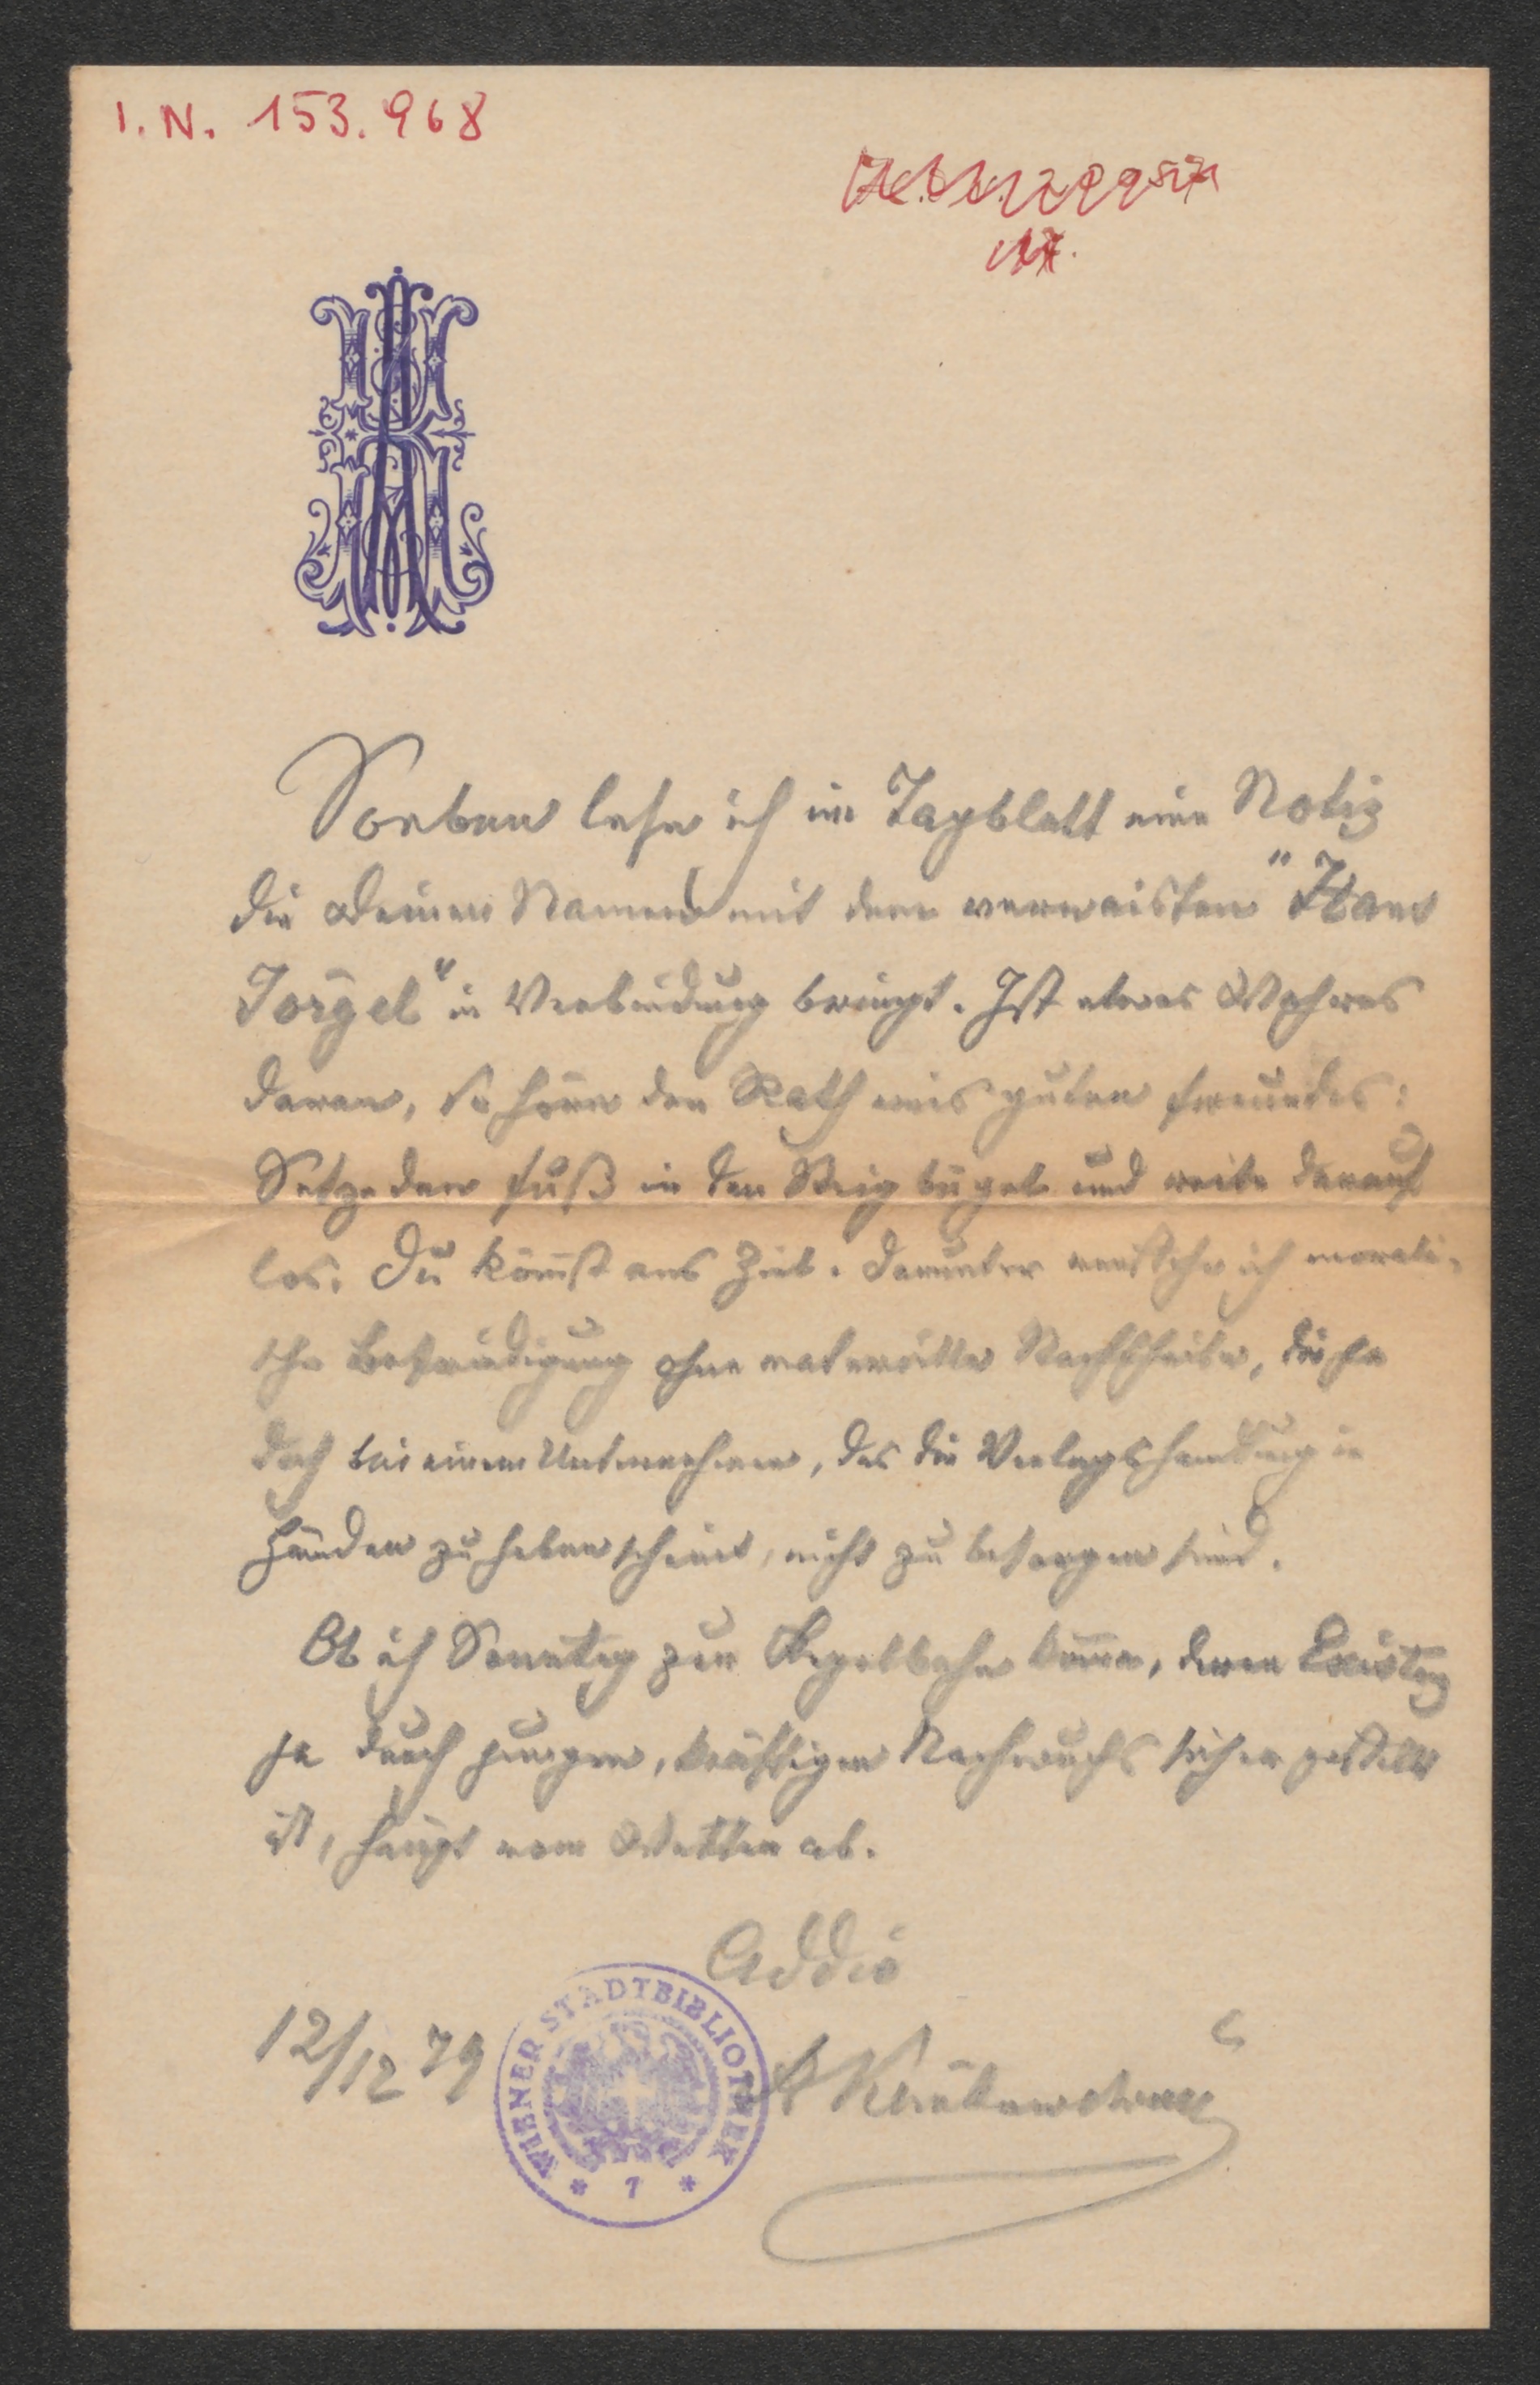 I. N. 153.968
Soeben lese ich im Tagblatt eine Notiz
die Deinen Namen mit dem verwaisten "Hans
Jörgel" in Verbindung bringt. Ist etwas Wahres
daran, so höre den Rath eines guten Freundes:
Setze den Fuß in den Steigbügel und reite darauf
los. Du kömst ans Ziel. Darunter verstehe ich morali-
sche Befriedigung ohne materielle Nachtheile, die ja
doch bei einem Unternehmen, das die Verlagshandlung in
Händen zu haben scheint, nicht zu besorgen sind.
Ob ich Sonntag zur Kegelbahn kome, deren Existenz
ja durch jungen, kräftigen Nachwuchs sicher gestellt
ist, hängt vom Wetter ab.
Addio
12/12 79
WIENER STADTBIBLIOTHEK
* 7 *